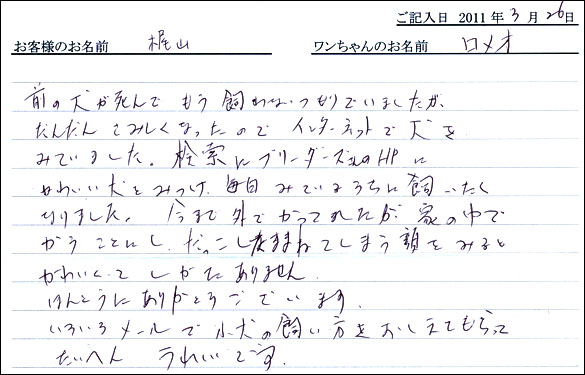 ご記入日 2011年3月26日
お客様のお名前 梶山 ワンちゃんのお名前 ロメオ
前の犬が死んでもう飼わないつもりでいましたが、
だんだんさみしくなったので インターネットで犬を
みていました。検索にブリーダーズさんのHPに
かわいい犬をみつけ 毎日 みているうちに飼いたく
なりました。 今まで外でかってましたが 家の中で
かうことにし だっこしたままねてしまう顔をみると
かわいくてしかたありません。
ほんとうにありがとうございます。
いろいろメールで小犬の飼い方をおしえてもらって
たいへん うれしいです。